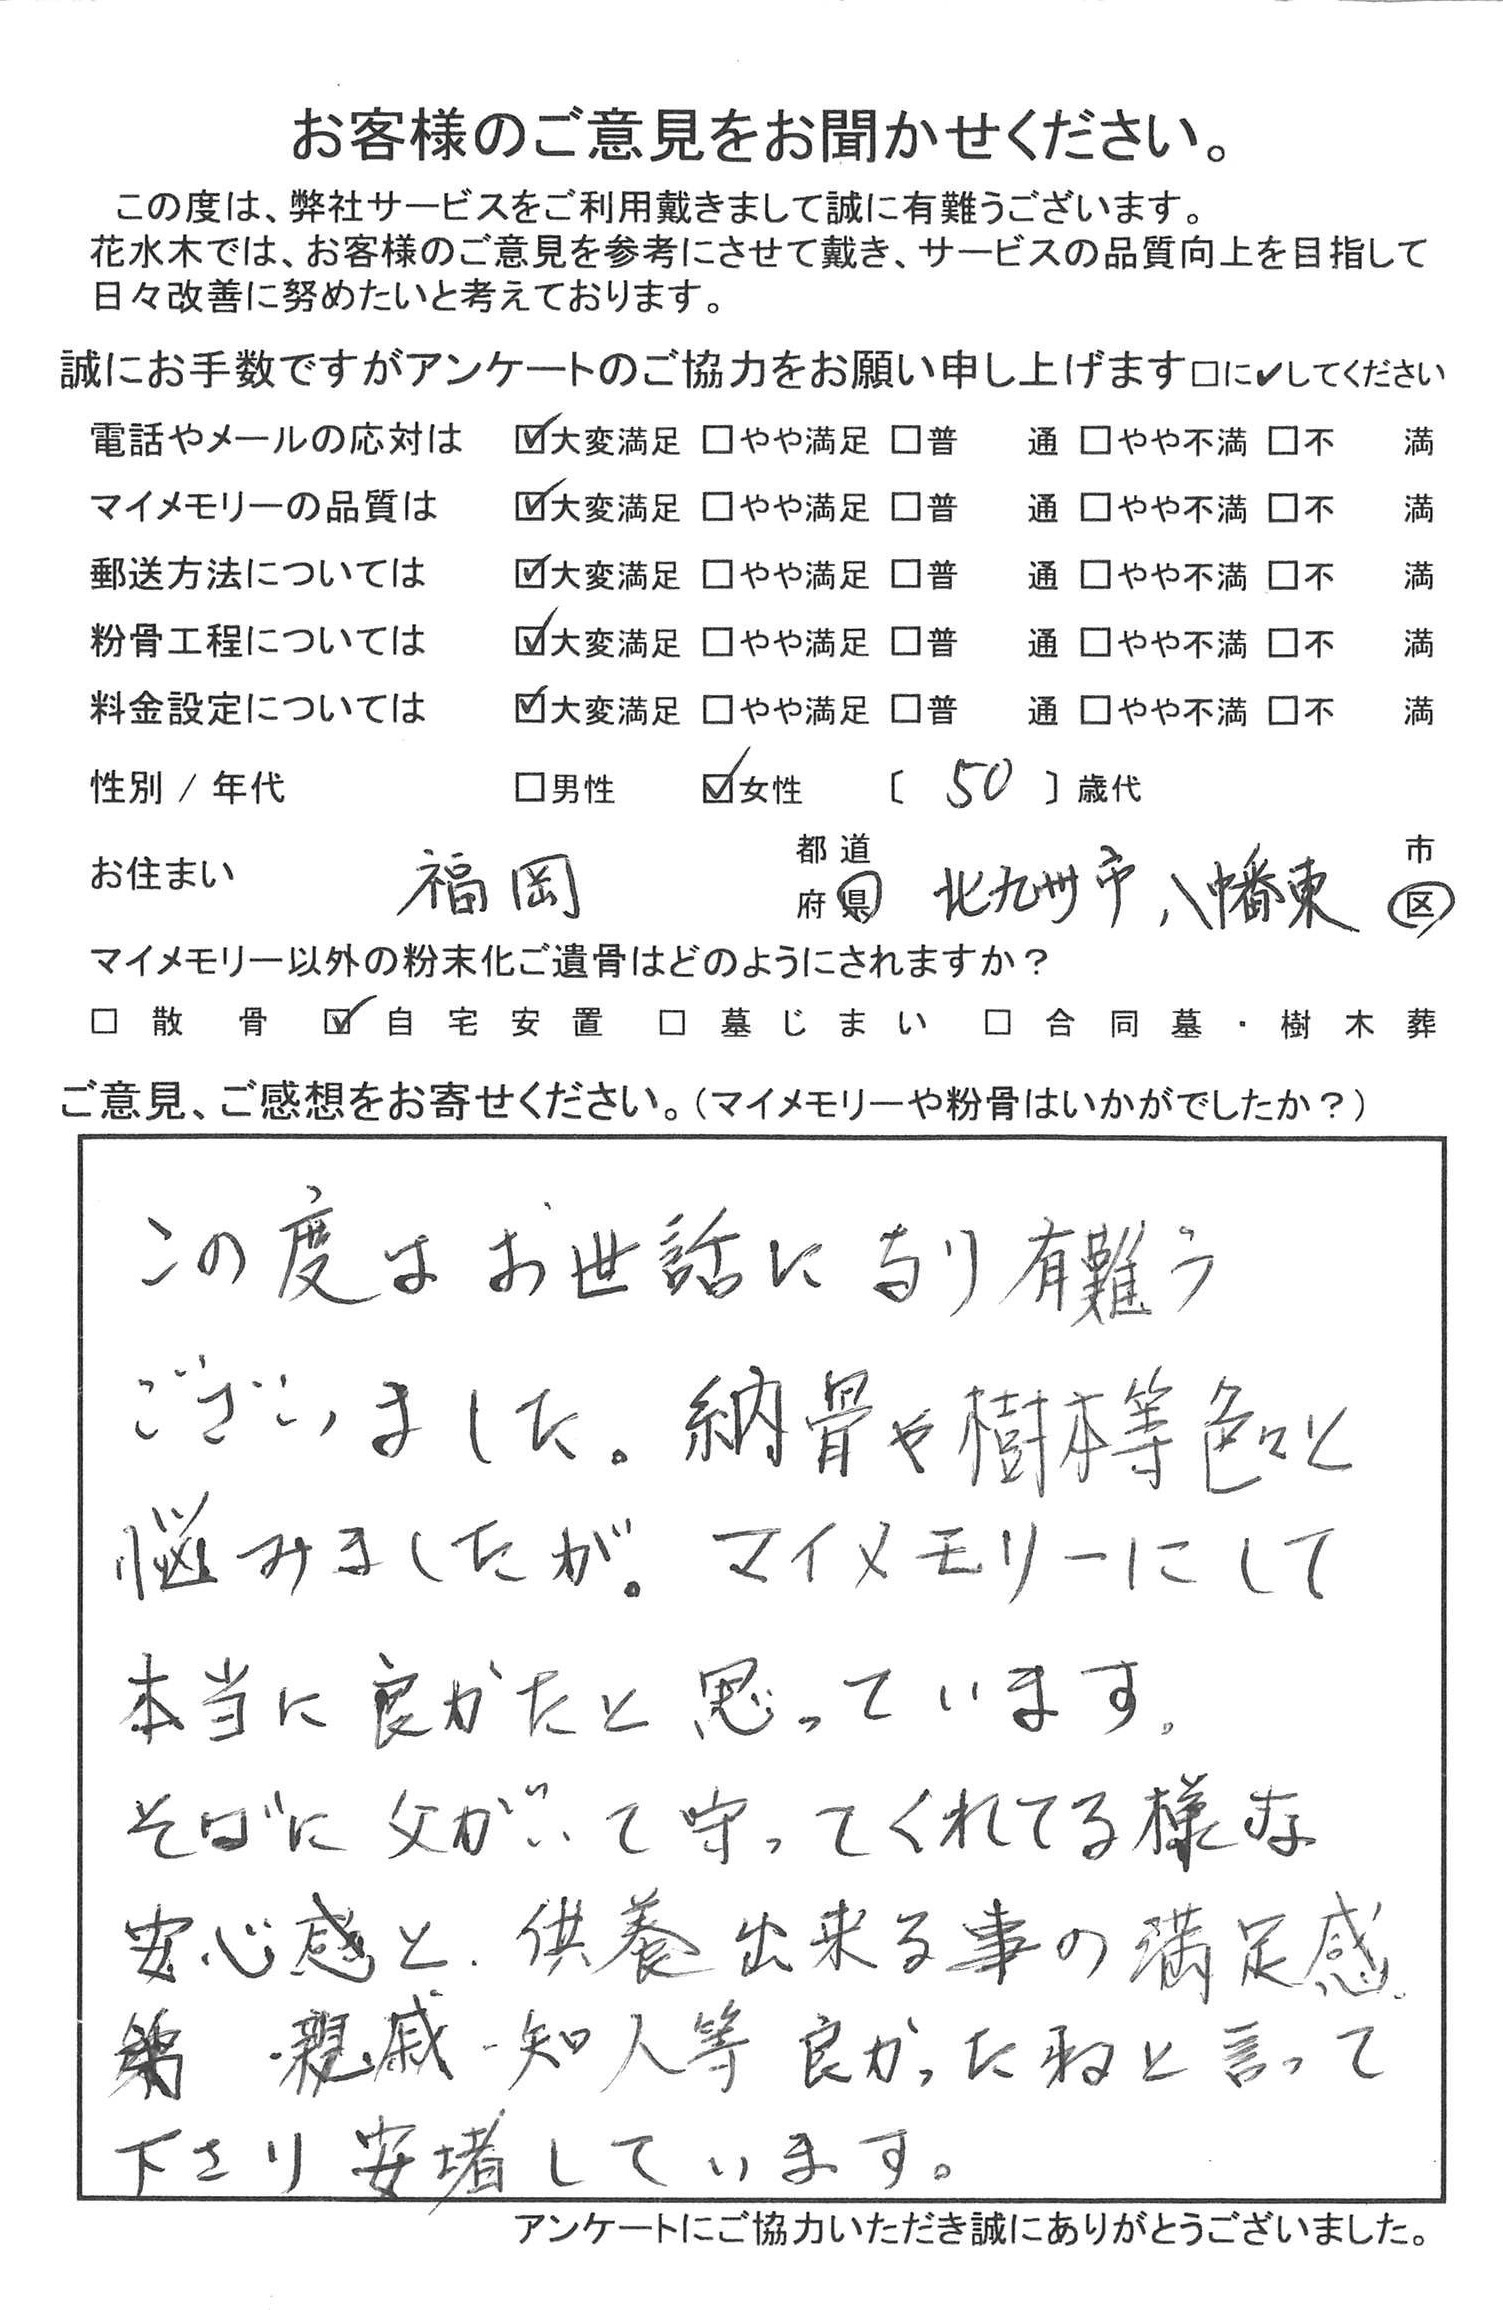 お客様のご意見をお聞かせください。
この度は、弊社サービスをご利用戴きまして誠に有難うございます。
花水木では、お客様のご意見を参考にさせて戴き、サービスの品質向上を目指して
日々改善に努めたいと考えております。
誠にお手数ですがアンケートのご協力をお願い申し上げます□に✔してください
電話やメールの応対は ☑大変満足 □やや満足 □普 通 □やや不満 □不 満
マイメモリーの品質は ☑大変満足 □やや満足 □普 通 □やや不満 □不 満
郵送方法については ☑大変満足 □やや満足 □普 通 □やや不満 □不 満
粉骨工程については ☑大変満足 □やや満足 □普 通 □やや不満 □不 満
料金設定については ☑大変満足 □やや満足 □普 通 □やや不満 □不 満
性別 / 年代 □男性 ☑女性 〔 50 〕歳代
お住まい 福岡 都道府県 北九州市八幡東 市区
マイメモリー以外の粉末化ご遺骨はどのようにされますか?
□ 散骨 ☑ 自宅安置 □ 墓じまい □ 合同墓・樹木葬
ご意見、ご感想をお寄せください。(マイメモリーや粉骨はいかがでしたか?)
この度はお世話に与り有難う
ございました。納骨や樹木等色々と
悩みましたが。マイメモリーにして
本当に良かたと思っています。
そばに父がいて守ってくれてる様な
安心感と、供養出来る事の満足感、
親戚・知人等良かったねと言って
下さり安堵しています。
アンケートにご協力いただき誠にありがとうございました。